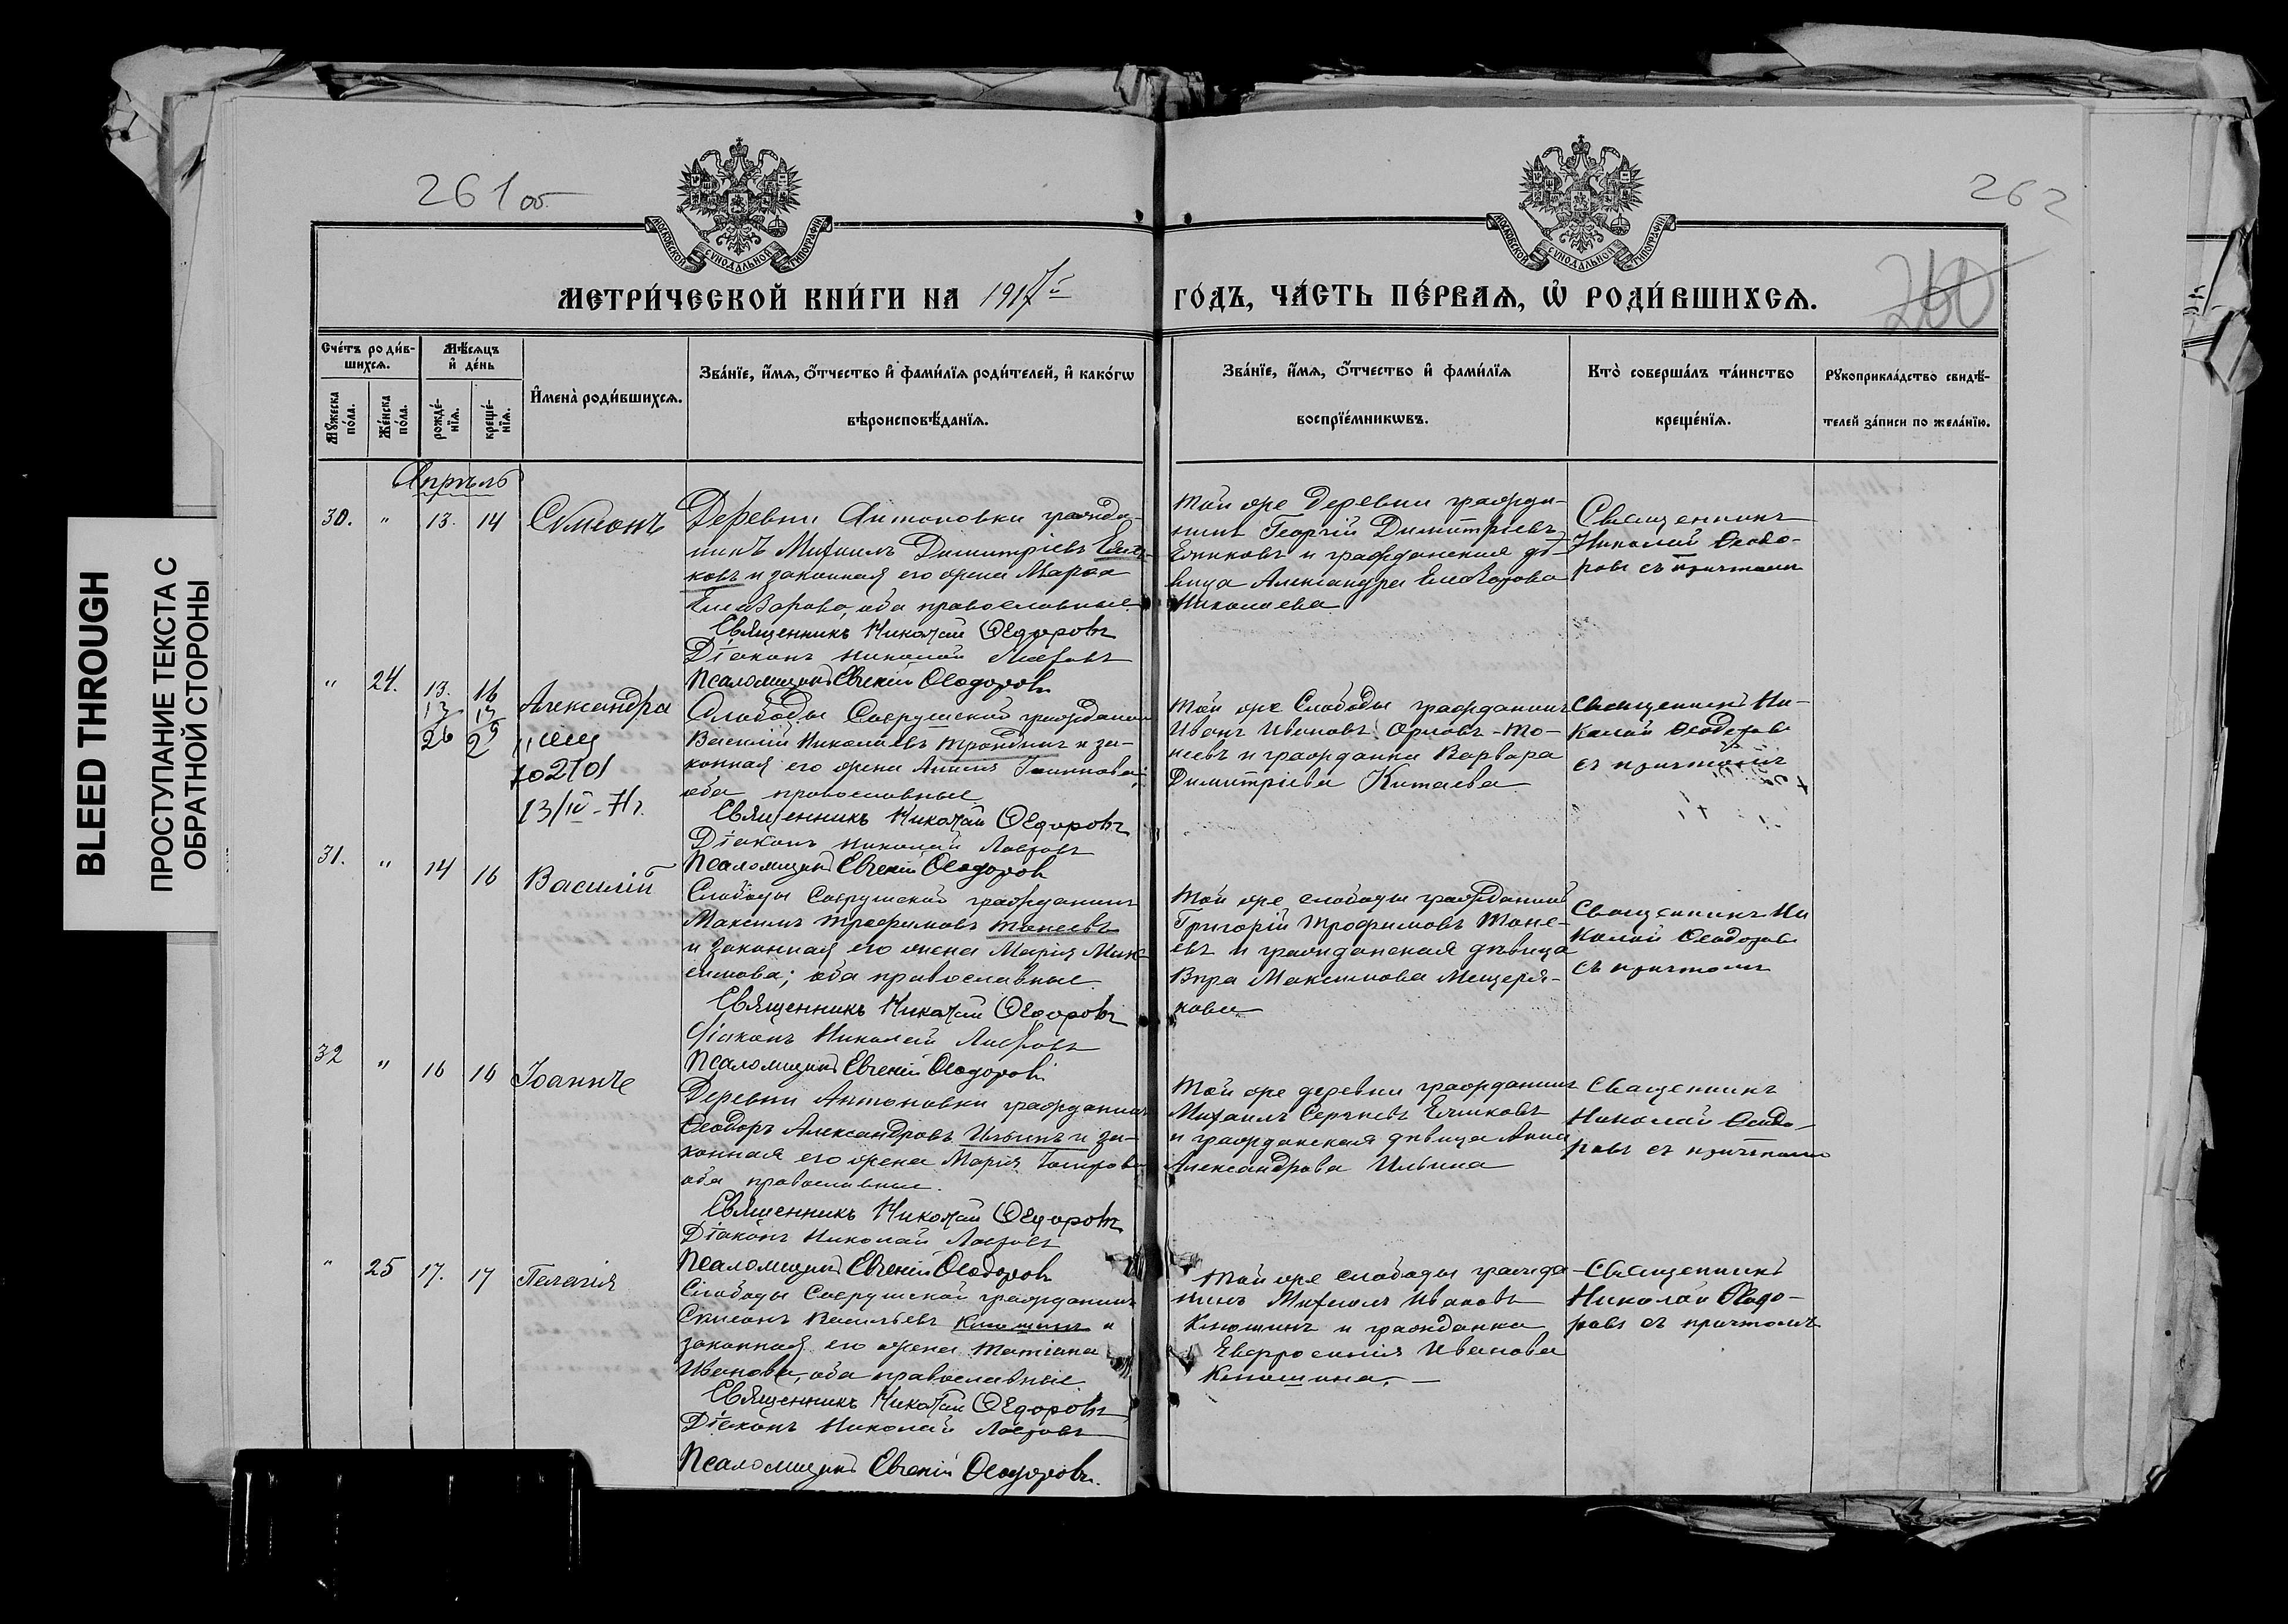 BLEED THROUGH
ПРОСТУПАНИЕ ТЕКСТА С
ОБРАТНОЙ СТОРОНЫ
261 об
262
260
МОСКОВСКОЙ СѴНОДАЛЬНОЙ ТИПОГРАФІИ
МОСКОВСКОЙ СѴНОДАЛЬНОЙ ТИПОГРАФІИ
МЕТРИ́ЧЕСКОЙ КНИ́ГИ НА 1917й
ГО́ДЪ, ЧА́СТЬ ПЕ́РВАѦ, Ѡ҆ РОДИ́ВШИХСѦ.
Сче́тъ роди́в-
шихсѧ.
Мѣ́сѧцъ
и҆ де́нь
Мꙋ́жеска
по́ла.
Же́нска
по́ла.
рожде́-
нїѧ.
креще́-
нїѧ.
И҆мена̀ роди́вшихсѧ.
Зва́нїе, и҆́мѧ, ѻ҆́тчество и҆ фами́лїѧ роди́телей, и҆ како́гѡ
вѣроисповѣ́данїѧ.
Зва́нїе, и҆́мѧ, ѻ҆́тчество и҆ фами́лїѧ
воспрїе́мникѡвъ.
Кто̀ соверша́лъ та́инство
креще́нїѧ.
Рꙋкоприкла́дство свидѣ́-
телей за́писи по жела́нїю.
Апрѣль
30. " 13. 14 Сѵмеонъ
Деревни Антоновки гражда-
нинъ Михаилъ Димитріевъ
ковъ и законная его жена Марѳа
Елеазарова, оба православные
Священникъ Николай Ѳедоровъ
Діаконъ Николай Лавровъ
Псаломщикъ Евгеній Ѳеодоровъ
Той же деревни гражда-
нинъ Георгій Димитріевъ
Елчковъ и гражданская дѣ-
вица Александра Елеазарова
Николаева
Священникъ
Николай Ѳеодо-
ровъ съ причтомъ
" 24. 13. 16 Александра
13 13
26 29
ю 2701
13/IV-71г.
Слободы гражданинъ
Василій Николаевъ и за-
конная его жена Іоаннова;
оба православные
Священникъ Николай Ѳедоровъ
Діаконъ Николай Лавровъ
Псаломщикъ Евгеній Ѳеодоровъ
Той же Слободы гражданинъ
Иванъ Ивановъ Орловъ-То-
неевъ и гражданка Варвара
Димитріева Китаева
Священникъ Ни-
колай Ѳеодоровъ
съ причтомъ
31. " 14 16 Василій
Слободы гражданинъ
Максимъ Трофимовъ Тонеевъ
и законная его жена Марія Мак-
симова; оба православные
Священникъ Николай Ѳедоровъ
Діаконъ Николай Лавровъ
Псаломщикъ Евгеній Ѳеодоровъ
Той же слободы гражданинъ
Григорій Трофимовъ Тоне-
евъ и гражданская дѣвица
Вѣра Максимова Мещеря-
кова
Священникъ Ни
колай Ѳеодоровъ
съ причтомъ
32 " 16 16 Іоаннъ
Деревни Антоновки гражданинъ
Ѳеодоръ Александровъ Ильинъ и за-
конная его жена Марія
оба православные.
Священникъ Николай Ѳедоровъ
Діаконъ Николай Лавровъ
Псаломщикъ Евгеній Ѳеодоровъ
Той же деревни гражданинъ
Михаилъ Сергѣевъ Елчковъ
и гражданская дѣвица Анна
Александрова Ильина
Священникъ
Николай Ѳеодо-
ровъ съ причтомъ
" 25 17. 17 Пелагія
Слободы гражданинъ
Сѵмеонъ Васильевъ Клюшинъ и
законная его жена Татіана
Иванова, оба православные.
Священникъ Николай Ѳедоровъ
Діаконъ Николай Лавровъ
Псаломщикъ Евгеній Ѳеодоровъ.
Той же слободы гражда-
нинъ Михаилъ Ивановъ
Клюшинъ и гражданка
Евфросинія Иванова
Клюшина.
Священникъ
Николай Ѳеодо-
ровъ съ причтомъ